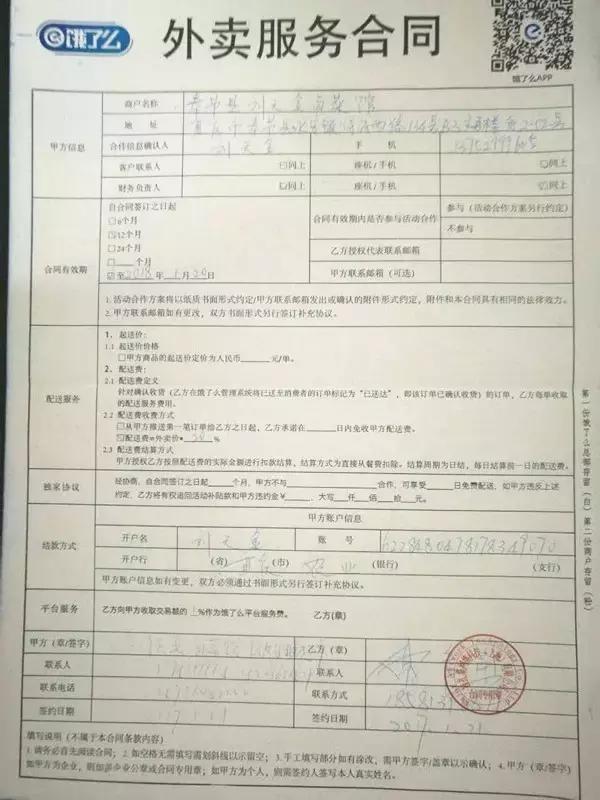 饿了么
外卖服务合同
饿了么APP
甲方信息
商户名称
奉节县刘天金卤菜馆
地 址
合作信息确认人
刘天金
手 机
客户联系人
同上
座机/手机
同上
财务负责人
同上
座机/手机
同上
合同有效期
自合同签订之日起
□6个月
☑12个月
□24个月
□____个月
☑至2018年1月20日
合同有效期内是否参与活动合作
参与(活动合作方案另行约定)
不参与
乙方授权代表联系邮箱
甲方联系邮箱(可选)
1.活动合作方案将以纸质书面形式约定/甲方联系邮箱发出或确认的附件形式约定,附件和本合同具有相同的法律效力。
2.甲方联系邮箱如有更改,双方书面形式另行签订补充协议。
配送服务
1、起送价:
1.1 起送价价格
□甲方商品的起送价定价为人民币______元/单。
2、配送费:
2.1 配送费定义
针对确认收货(乙方在饿了么管理系统将已送至消费者的订单标记为“已送达”,即该订单已确认收货)的订单,乙方每单收取
的配送服务费用。
2.2 配送费收费方式
□从甲方推送第一笔订单给乙方之日起,乙方承诺在______日内免收甲方配送费。
☑配送费=外卖价*20%
2.3 配送费结算方式
甲方授权乙方按照配送费的实际金额进行扣款结算,结算方式为直接从餐费扣除。结算周期为日结,每日结算前一日的配送费。
独家协议
经协商,自合同签订之日起______个月,甲方不与______合作,可享受______日免费配送,如甲方违反上述
约定,乙方将有权追回活动补贴款和甲方违约金¥______,大写__仟__佰__拾__元。
结款方式
甲方账户信息
开户名
刘天金
账 号
开户行
(省)
(市)
农业
(银行)
(支行)
甲方账户信息如有变更,双方必须通过书面形式另行签订补充协议。
平台服务
乙方向甲方收取交易额的
%作为饿了么平台服务费。
乙方(章)
甲方(章/签字)
乙方(章)
联系人
联系人
联系电话
联系方式
签约日期
签约日期
2017.1.21
填写说明(不属于本合同条款内容)
1.请务必首先阅读合同;2.如空格无需填写需划斜线以示留空;3.手工填写部分如有涂改,需甲方签字/盖章以示确认;4.甲方(章/签字)
如甲方为企业,则加盖企业公章或合同专用章;如甲方为个人,则需签约人签写本人真实姓名。
第一份饿了么总部存留(白)第二份商户存留(粉)